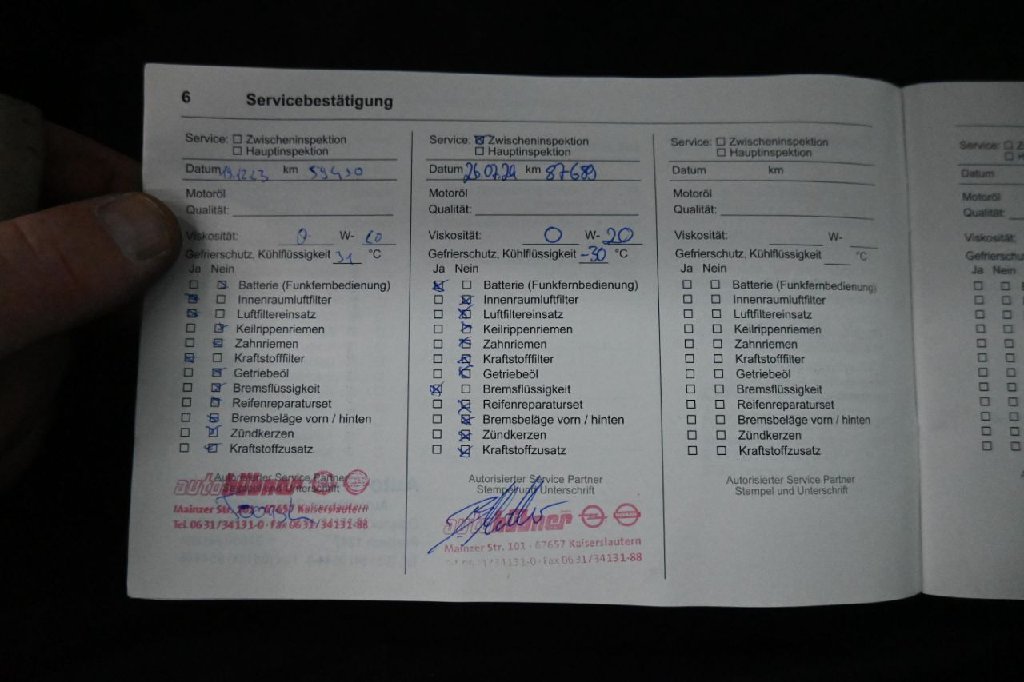 6 Servicebestätigung
Service: Zwischeninspektion
Hauptinspektion
Datum 19.12.23 km
Motoröl
Qualität:
Viskosität: 0 W- 20
Gefrierschutz, Kühlflüssigkeit 31 °C
Ja Nein
Batterie (Funkfernbedienung)
Innenraumluftfilter
Luftfiltereinsatz
Keilrippenriemen
Zahnriemen
Kraftstofffilter
Getriebeöl
Bremsflüssigkeit
Reifenreparaturset
Bremsbeläge vorn / hinten
Zündkerzen
Kraftstoffzusatz
Autorisierter Service Partner
Stempel und Unterschrift
Mainzer Str. 67657 Kaiserslautern
Tel. 0631/34131-0 · Fax 0631/34131-88
Service: Zwischeninspektion
Hauptinspektion
Datum 26.07.24 km 87689
Motoröl
Qualität:
Viskosität: 0 W- 20
Gefrierschutz, Kühlflüssigkeit -30 °C
Ja Nein
Batterie (Funkfernbedienung)
Innenraumluftfilter
Luftfiltereinsatz
Keilrippenriemen
Zahnriemen
Kraftstofffilter
Getriebeöl
Bremsflüssigkeit
Reifenreparaturset
Bremsbeläge vorn / hinten
Zündkerzen
Kraftstoffzusatz
Autorisierter Service Partner
Stempel und Unterschrift
Mainzer Str. 101 · 67657 Kaiserslautern
Tel. 0631/34131-0 · Fax 0631/34131-88
Service: Zwischeninspektion
Hauptinspektion
Datum km
Motoröl
Qualität:
Viskosität: W-
Gefrierschutz, Kühlflüssigkeit °C
Ja Nein
Batterie (Funkfernbedienung)
Innenraumluftfilter
Luftfiltereinsatz
Keilrippenriemen
Zahnriemen
Kraftstofffilter
Getriebeöl
Bremsflüssigkeit
Reifenreparaturset
Bremsbeläge vorn / hinten
Zündkerzen
Kraftstoffzusatz
Autorisierter Service Partner
Stempel und Unterschrift
Service:
Datum
Motoröl
Qualität:
Viskosität:
Ja Nein